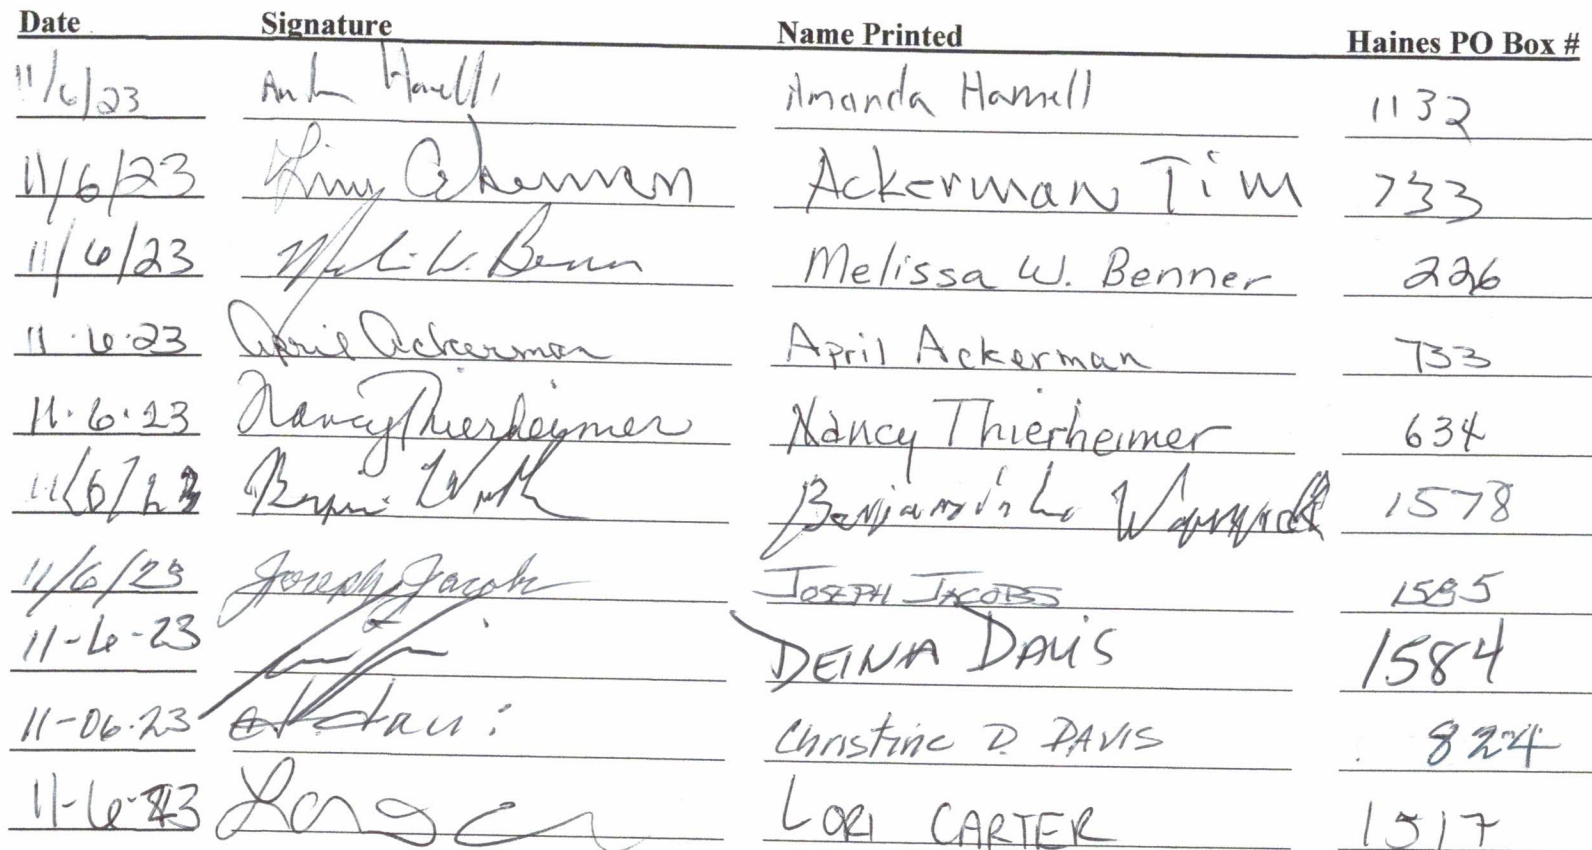 Date Signature Name Printed Haines PO Box #
11/6/23 Amanda Hamell 1132
11/6/23 Tim Ackerman Ackerman Tim 733
11/6/23 Melissa W. Benner 226
11·6·23 April Ackerman April Ackerman 733
11·6·23 Nancy Thierheimer Nancy Thierheimer 634
11/6/23 1578
11/6/23 Joseph Jacobs JOSEPH JACOBS 1585
11-6-23 DEINA DAVIS 1584
11-06-23 Christine D. DAVIS 824
11-6-23 LORI CARTER 1517